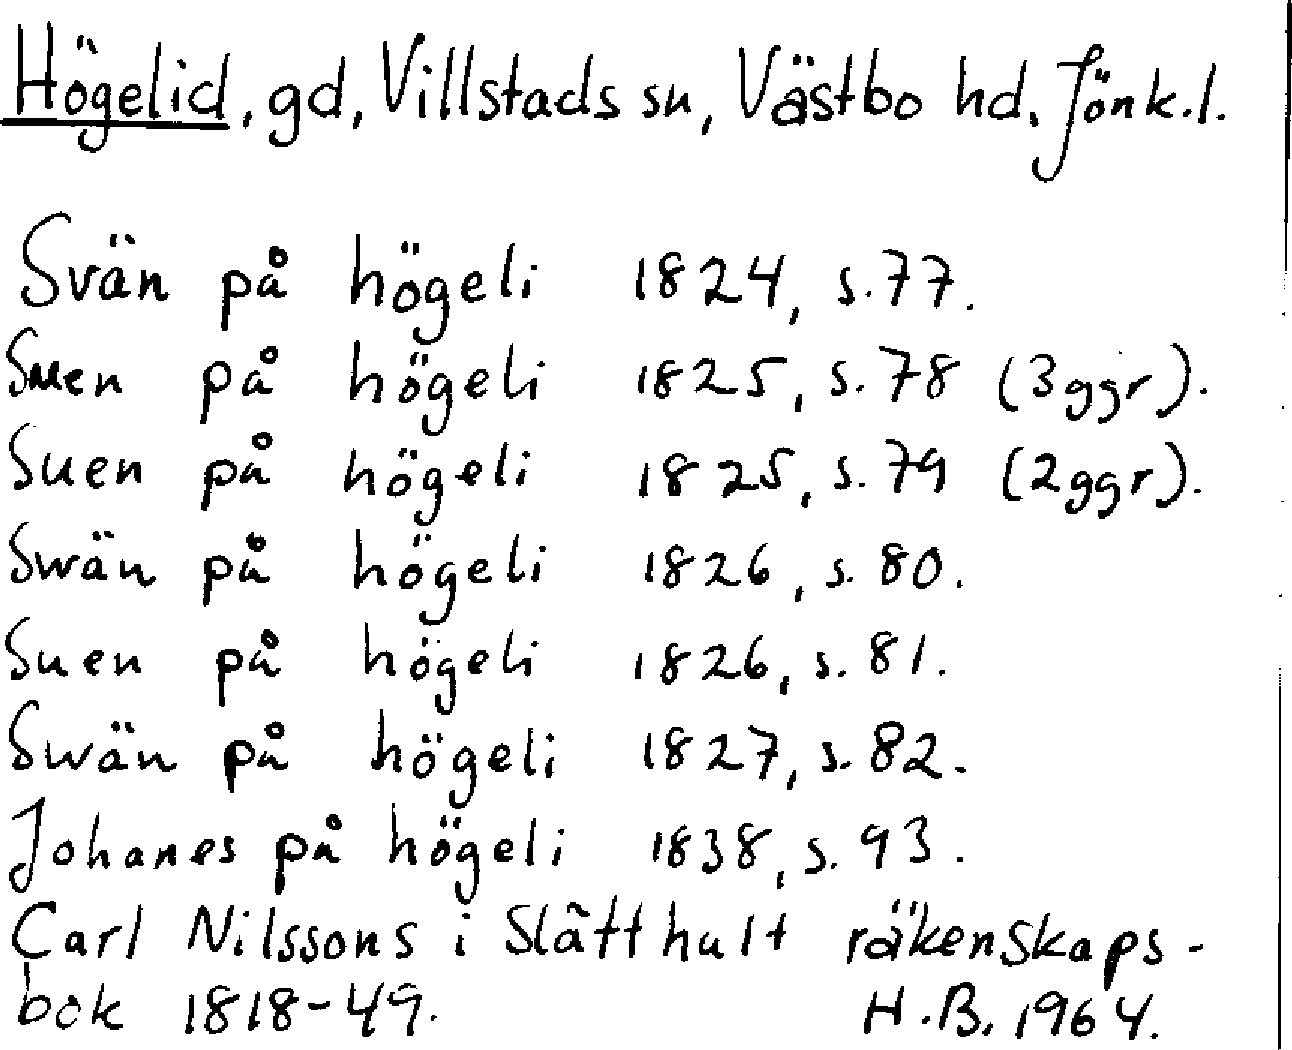 Högelid, gd, Villstads sn, Västbo hd. Jönk.l.
Svän på högeli 1824, s.77.
Suen på högeli 1825, s.78 (3ggr).
Suen på högeli 1825, s.79 (2ggr).
Swän på högeli 1826, s. 80.
Suen på högeli 1826, s. 81.
Swän på högeli 1827, s. 82.
Johanes på högeli 1838, s. 93.
Carl Nilssons i Slätthult räkenskaps-
bok 1818-49. H.B. 1964.